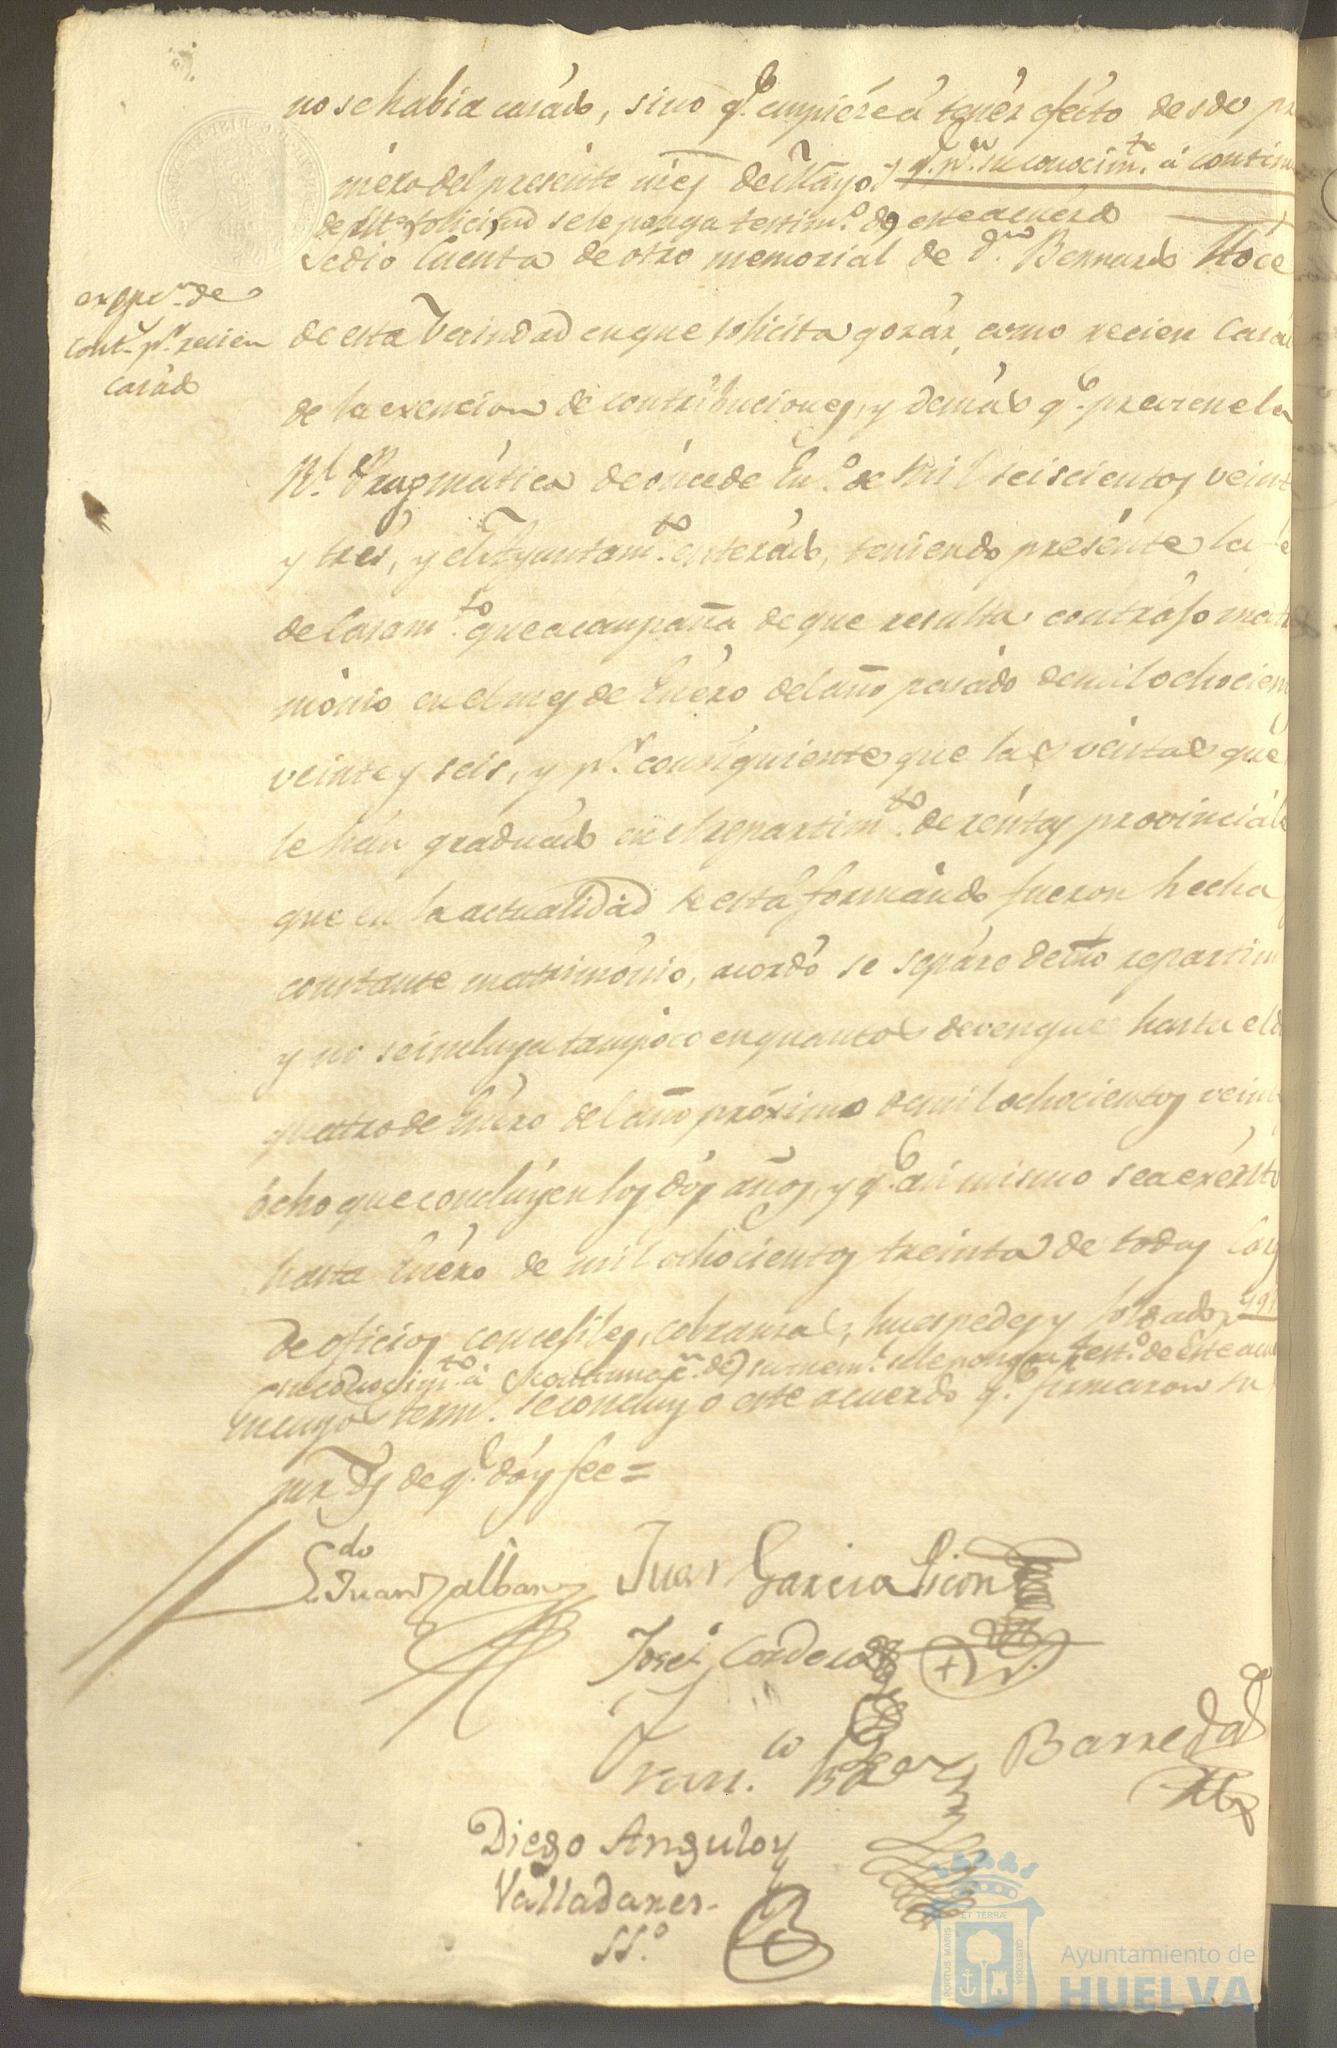 no se habia casádo, sino q.e empiére á tenér efécto desde pri
méro del presénte més de Mayo; y q.e p.a su conocim.to á contin
de dita solicitud se le ponga testim.o de este acuerdo
exppc.n de
cont.s p.r recien
casádo
Se dió Cuenta de otro memorial de d.n Bernardo
de esta Vecindad en que solicita gozár, como recien Casád
de la exencion de contribuciones, y demás q.e previene la
R.l Pragmática de ónce de En.o de mil seiscientos veinte
y trés, y el Ayuntam.to enterádo, teniendo presénte la fe
de Casam.to que acompaña de que resulta contrajo matri
mónio en el mes de Enéro del año pasádo de mil ochocien
veinte y seis, y p.r consiguiente que las véntas que
le hán graduádo en el repartim.to de réntas provinciále
que en la actualidad se está formándo fueron hecha
constante matrimónio, acordó se sepáre de dho repartim
y no se incluya tampoco en quantos devengue hasta el d
quatro de Enéro del año próximo de mil ochocientos veint
ócho que conclúyen los dós años, y q.e asi mismo sea exénto
hasta Enéro de mil ochocientos treinta de todas las
de oficios concejiles, cobranzas, huespedes y soldados,
su conocim.to á continuac.n de su mem.l se le ponga test.o de este acue
en cuyos term.s se concluyo este acuerdo q.e firmaron su
mrzds de q.e dóy fee =
L.do Juan Jalban
Juan Garcia Picon
José Cordero
Fran.co
Barreda
Diego Angulo y
Valladares.
SS.o
PORTUS MARIS ET TERRÆ CUSTODIA
Ayuntamiento de
HUELVA